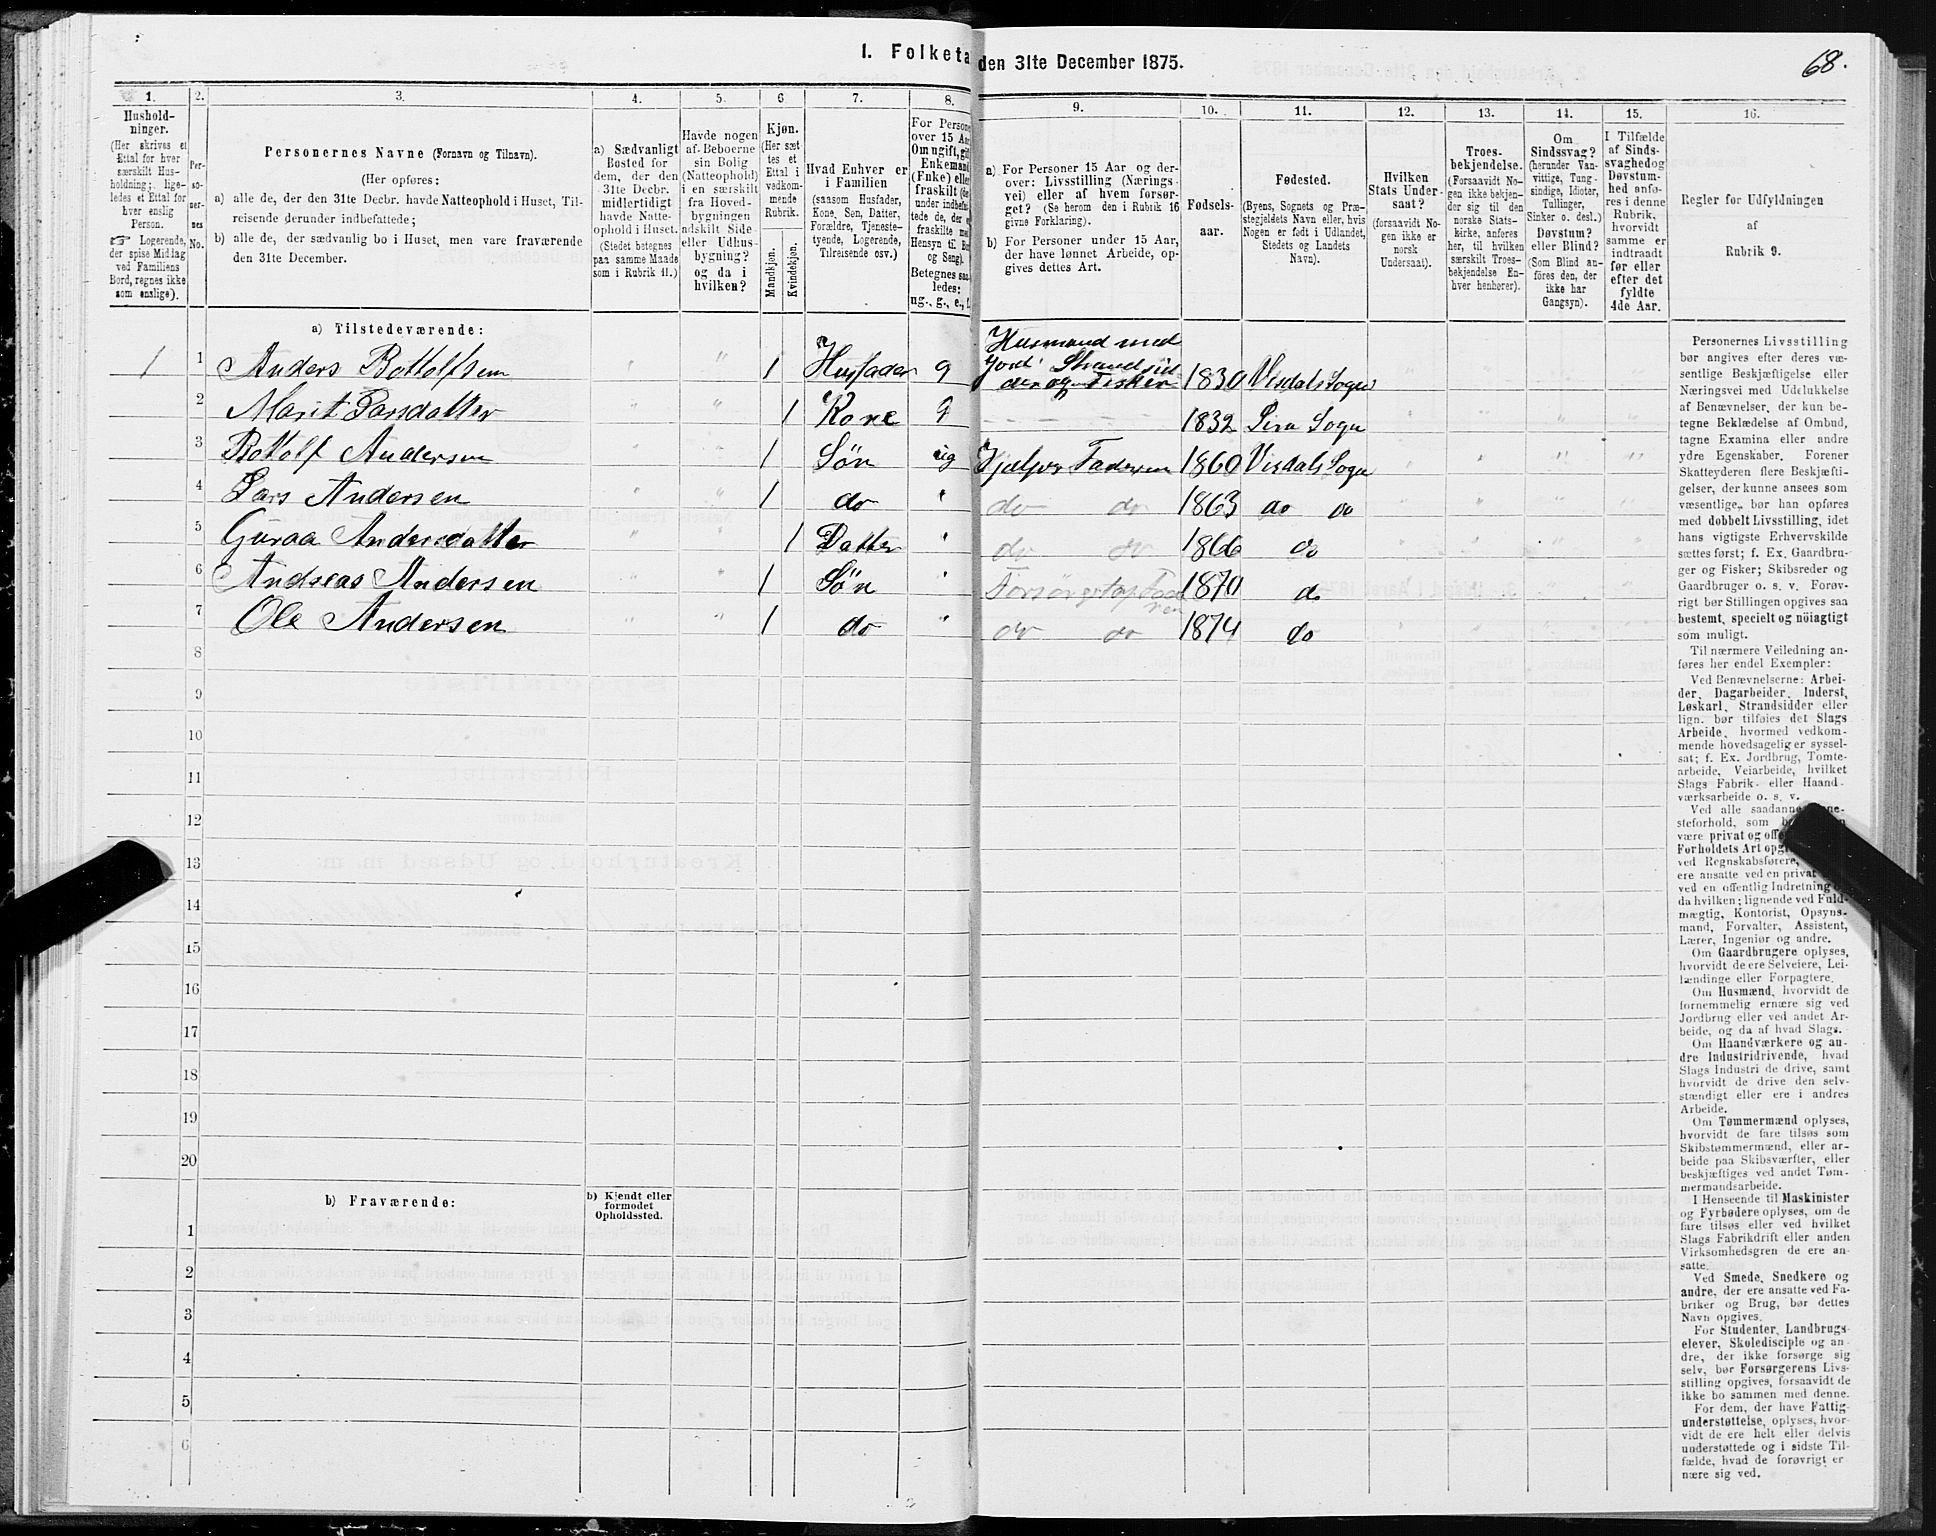 I. Folketa den 31te December 1875.
68.
1. 2. 3. 4. 5. 6 7. 8. 9. 10. 11. 12. 13. 14. 15. 16.
Hushold-
ninger.
(Her skrives et
Ettal for hver
særskilt Hus-
holdning; lige-
ledes et Ettal for
hver enslig
Person.
☞ Logerende,
der spise Middag
ved Familiens
Bord, regnes ikke
som enslige).
Per-
so-
ner-
nes
No.
Personernes Navne (Fornavn og Tilnavn).
(Her opføres:
a) alle de, der den 31te Decbr. havde Natteophold i Huset, Til-
reisende derunder indbefattede;
b) alle de, der sædvanlig bo i Huset, men vare fraværende
den 31te December.
a) Sædvanligt
Bosted for
dem, der den
31te Decbr.
midlertidigt
havde Natte-
ophold i Huset.
(Stedet betegnes
paa samme Maade
som i Rubrik 11.)
Havde nogen
af Beboerne
sin Bolig
(Natteophold)
i en særskilt
fra Hoved-
bygningen
adskilt Side-
eller Udhus-
bygning?
og da i
hvilken?
Kjøn.
(Her sæt-
tes et
Ettal i
vedkom-
mende
Rubrik.
Mandkjøn.
Kvindekjøn.
Hvad Enhver er
i Familien
(saasom Husfader,
Kone, Søn, Datter,
Forældre, Tjeneste-
tyende, Logerende,
Tilreisende osv.)
For Persone
over 15 Aa
Om ugift, gi
Enkemand
(Enke) elle
fraskilt (der
under indbefat
tede de, der e
fraskilte me
Hensyn til Bo
og Seng).
Betegnes saa
ledes:
ug., g., e., f.
a) For Personer 15 Aar og der-
over: Livsstilling (Nærings-
vei) eller af hvem forsør-
get? (Se herom den i Rubrik 16
givne Forklaring).
b) For Personer under 15 Aar,
der have lønnet Arbeide, op-
gives dettes Art.
Fødsels-
aar.
Fødested.
(Byens, Sognets og Præ-
stegjeldets Navn eller, hvis
Nogen er født i Udlandet,
Stedets og Landets
Navn).
Hvilken
Stats Under-
saat?
(forsaavidt No-
gen ikke er
norsk
Undersaat).
Troes-
bekjendelse.
(Forsaavidt No-
gen ikke bekjen-
der sig til den
norske Stats-
kirke, anføres
her, til hvilken
særskilt Troes-
bekjendelse En-
hver henhører).
Om
Sindssvag?
(herunder Van-
vittige, Tung-
sindige, Idioter,
Tullinger,
Sinker o. desl.)
Døvstum?
eller Blind?
(Som Blind an-
føres den, der
ikke har
Gangsyn).
I Tilfælde
af Sinds-
svaghed og
Døvstum-
hed anfø-
res i denne
Rubrik,
hvorvidt
samme er
indtraadt
før eller
efter det
fyldte
4de Aar.
Regler for Udfyldningen
af
Rubrik 9.
a) Tilstedeværende:
Husmand med
Jord Strandsid
1 1 Anders Bottolfsen " " 1 Husfader g der og Fisker 1830 Visdals Sogn
2 Marit Larsdatter " " 1 Kone g 1832 Lira Sogn
3 Bottolf Andersen " " 1 Søn ug Hjælper Faderen 1860 Visdals Sogn
4 Lars Andersen " " 1 do " do do 1863 do do
5 Guraa Andersdatter " " 1 Datter " do do 1866 do
6 Andreas Andersen " " 1 Søn " Forsørget af Fade
ren 1870 do
7 Ole Andersen " " 1 do " do do 1874 do
8
9
10
11
12
13
14
15
16
17
18
19
20
b) Fraværende:
b) Kjendt eller
formodet
Opholdssted.
1
2
3
4
5
6
Personernes Livsstilling
bør angives efter deres væ-
sentlige Beskjæftigelse eller
Næringsvei med Udelukkelse
af Benævnelser, der kun be-
tegne Beklædelse af Ombud,
tagne Examina eller andre
ydre Egenskaber. Forener
Skatteyderen flere Beskjæfti-
gelser, der kunne ansees som
væsentlige, bør han opføres
med dobbelt Livsstilling, idet
hans vigtigste Erhvervskilde
sættes først; f. Ex. Gaardbru-
ger og Fisker; Skibsreder og
Gaardbruger o. s. v. Forøv-
rigt bør Stillingen opgives saa
bestemt, specielt og nöiagtigt
som muligt.
Til nærmere Veiledning an-
føres her endel Exempler:
Ved Benævnelserne: Arbei-
der, Dagarbeider, Inderst,
Løskarl, Strandsidder eller
lign. bør tilføies det Slags
Arbeide, hvormed vedkom-
mende hovedsagelig er syssel-
sat; f. Ex. Jordbrug, Tomte-
arbeide, Veiarbeide, hvilket
Slags Fabrik- eller Haand-
værksarbeide o. s. v.
Ved alle saadanne
steforhold, som
være privat og
Forholdets Art
ved Regnskabsførere,
ere ansatte ved en privat
ved en offentlig Indretning
da hvilken; lignende ved Fuld-
mægtig, Kontorist, Opsyns-
mand, Forvalter, Assistent,
Lærer, Ingeniør og andre.
Om Gaardbrugere oplyses,
hvorvidt de ere Selveiere, Lei-
lændinge eller Forpagtere.
Om Husmænd, hvorvidt de
fornemmelig ernære sig ved
Jordbrug eller ved andet Ar-
beide, og da af hvad Slags.
Om Haandværkere og an-
dre Industridrivende, hvad
Slags Industri de drive, samt
hvorvidt de drive den selv-
stændigt eller ere i andres
Arbeide.
Om Tømmermænd oplyses,
hvorvidt de fare tilsøs som
Skibstømmermænd, eller ar-
beide paa Skibsværfter, eller
beskjæftiges ved andet Tøm-
mermandsarbeide.
I Henseende til Maskinister
og Fyrbødere oplyses, om de
fare tilsøs eller ved hvilket
Slags Fabrikdrift eller anden
Virksomhedsgren de ere an-
satte.
Ved Smede, Snedkere og
andre, der ere ansatte ved Fa-
briker og Brug, bør dettes
Navn opgives.
For Studenter, Landbrugs-
elever, Skoledisciple og an-
dre, der ikke forsørge sig
selv, bør Forsørgerens Livs-
stilling opgives, forsaavidt de
ikke bo sammen med denne.
For dem, der have Fattig-
understøttelse, oplyses, hvor-
vidt de ere helt eller delvis
understøttede og i sidste Til-
fælde, hvad de forøvrigt er
nære sig ved.